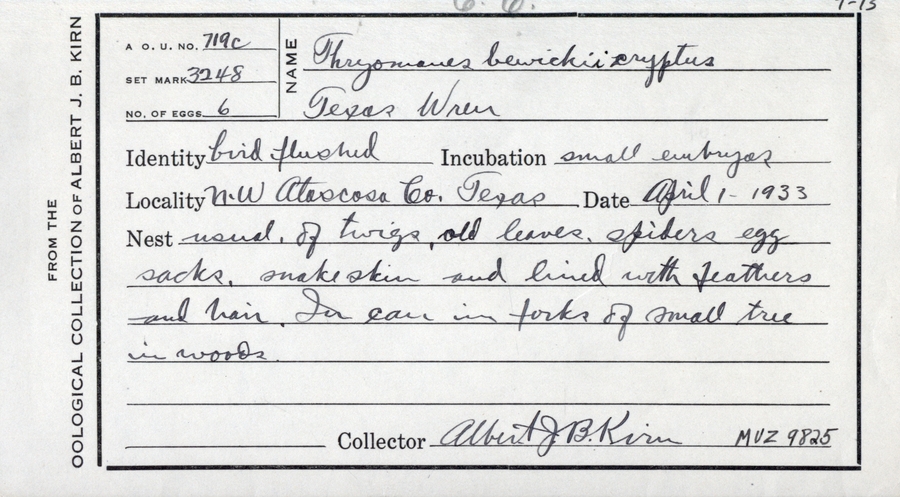 7-13
FROM THE
OOLOGICAL COLLECTION OF ALBERT J. B. KIRN
A. O. U. NO. 719c
SET MARK 3248
NO. OF EGGS 6
NAME
Thryomanes bewickii cryptus
Texas Wren
Identity bird flushed Incubation small embryos
Locality N.W Atascosa Co. Texas Date April 1 - 1933
Nest usual, of twigs, old leaves, spiders egg
sacks, snake skin and lined with feathers
and hair. In can in forks of small tree
in woods.
Collector Albert J. B. Kirn MVZ 9825